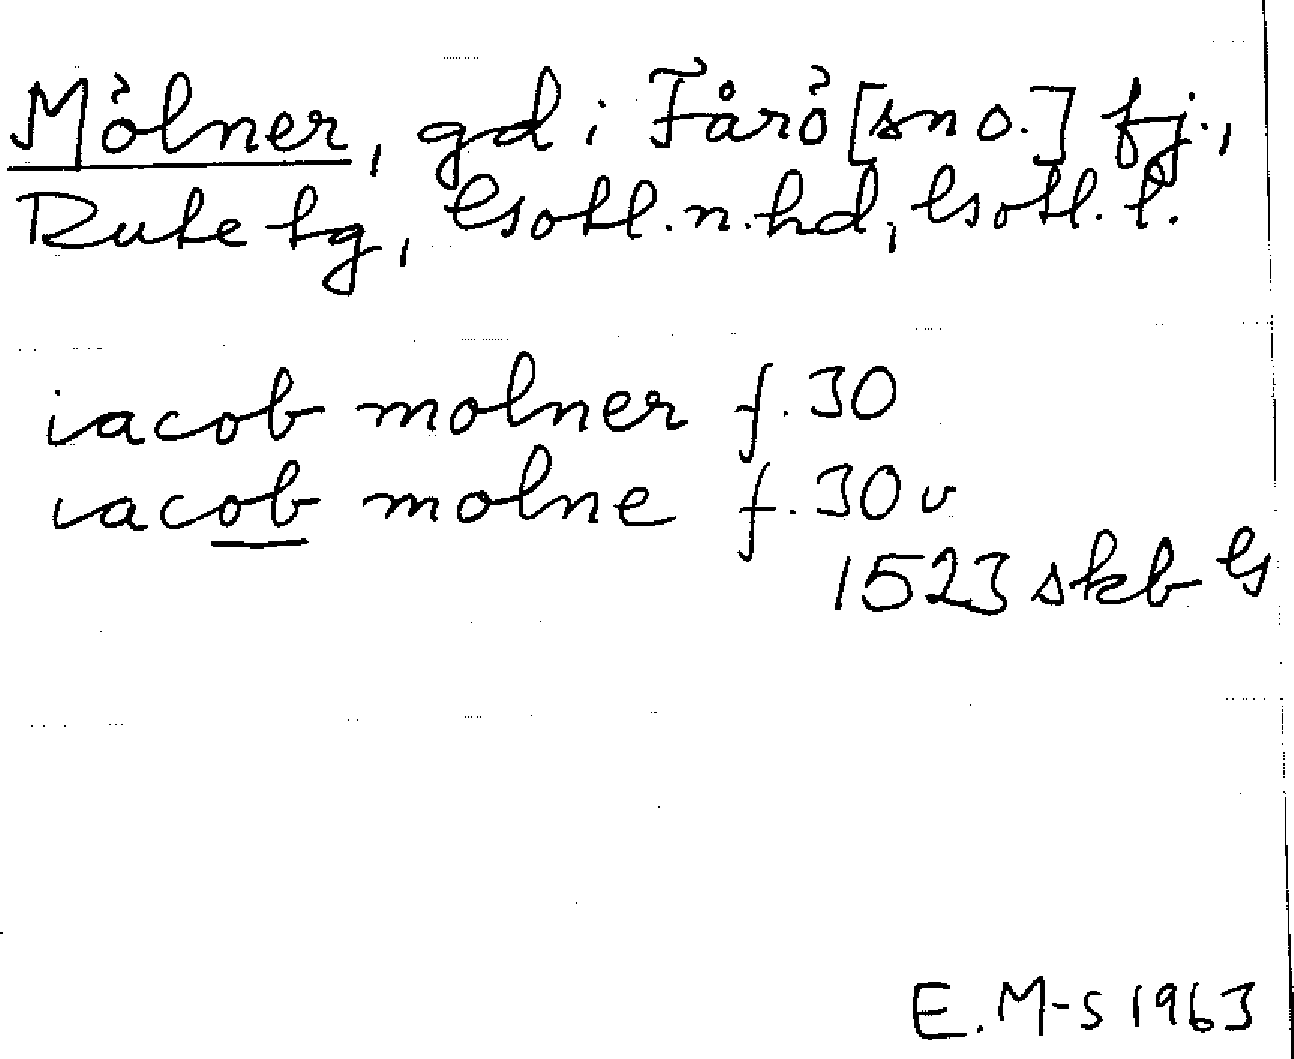 Mölner, gd i Fårö [sn o.] fj.,
Rute tg, Gotl. n. hd, Gotl. l.
iacob molner f. 30
iacob molne f. 30 v
1523 skb G
E. M-S 1963